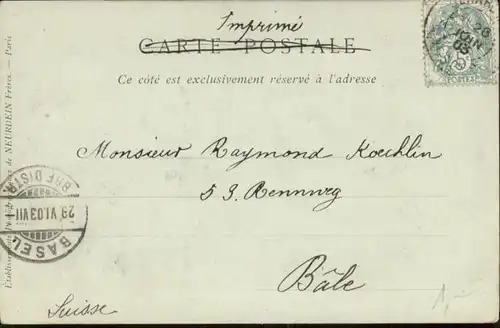 Imprimé
CARTE POSTALE
Ce côté est exclusivement réservé à l'adresse
28
JUIN
03
POSTES
Monsieur Raymond Koechlin
53. Rennweg
Bâle
Suisse
BRF. DISTR.
29.VI.03.VII
BASEL
de NEURDEIN Frères. — Paris